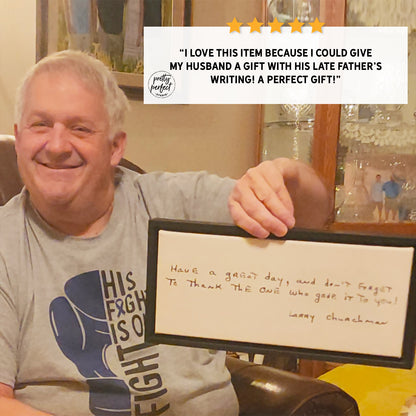 "I LOVE THIS ITEM BECAUSE I COULD GIVE
MY HUSBAND A GIFT WITH HIS LATE FATHER'S
WRITING! A PERFECT GIFT!"
pretty
perfect
HAVE a gREAT day, and don't FORGET
TO THANK THE ONE who gave it to you!
Larry Churchman
HIS
FIGHT
IS OUR
FIGHT